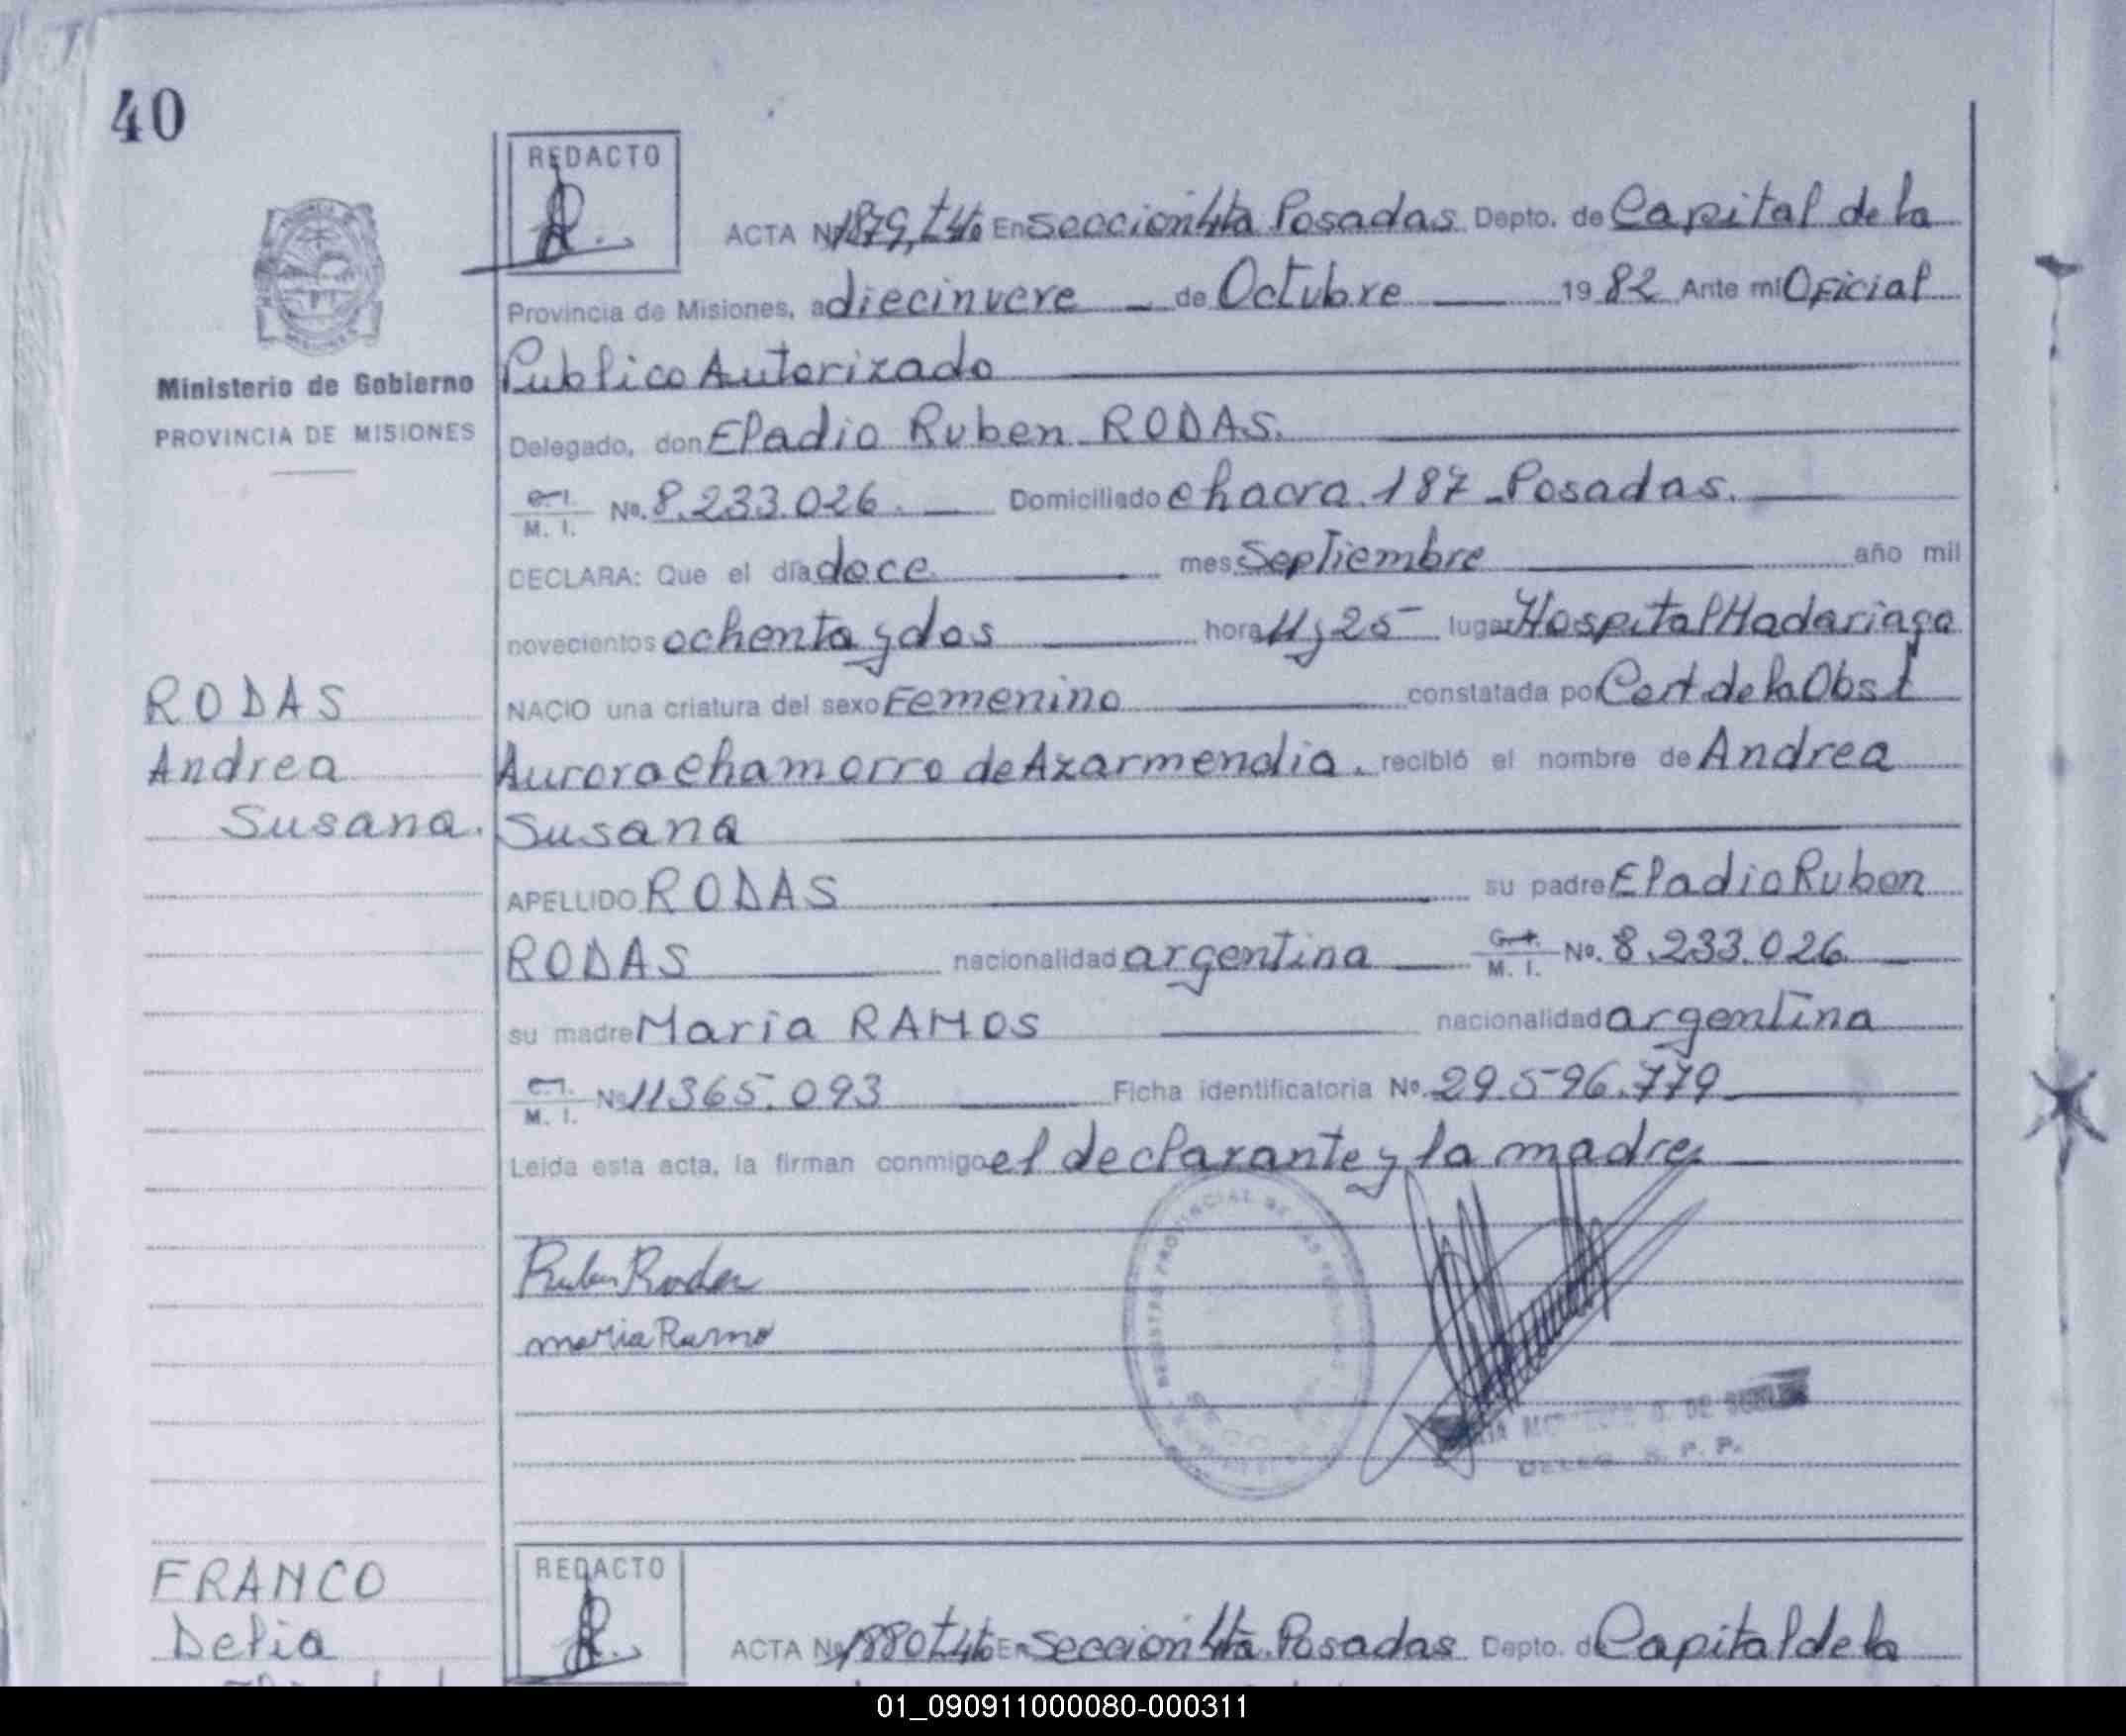 40
REDACTO
ACTA Nº 1879, t 4to En seccion 4ta Posadas Depto. de Capital de la
Provincia de Misiones, a diecinueve de Octubre 1982 Ante mi Oficial
Ministerio de Gobierno
PROVINCIA DE MISIONES
Publico Autorizado
Delegado, don Eladio Ruben RODAS.
C. I.
M. I. Nº. 8.233.026. Domiciliado chacra. 187 - Posadas.
DECLARA: Que el día doce mes Septiembre año mil
novecientos ochenta y dos hora 11 y 25 lugar Hospital Madariaga
RODAS
Andrea
Susana.
NACIO una criatura del sexo Femenino constatada por Cert de la Obst
Aurora Chamorro de Azarmendia. recibió el nombre de Andrea
Susana
APELLIDO RODAS su padre Eladio Ruben
RODAS nacionalidad argentina C. I. M. I. Nº. 8.233.026
su madre Maria RAMOS nacionalidad argentina
C. I.
M. I. Nº 11365.093 Ficha identificatoria Nº. 29.596.779
Leida esta acta, la firman conmigo el declarante y la madre
Ruben Rodas
maria Ramo
PROVINCIAL DE LAS
DELEG. R. P. P.
FRANCO
Delia
REDACTO
ACTA Nº 1880 t 4to En seccion 4ta. Posadas Depto. d Capital de la
01_090911000080-000311